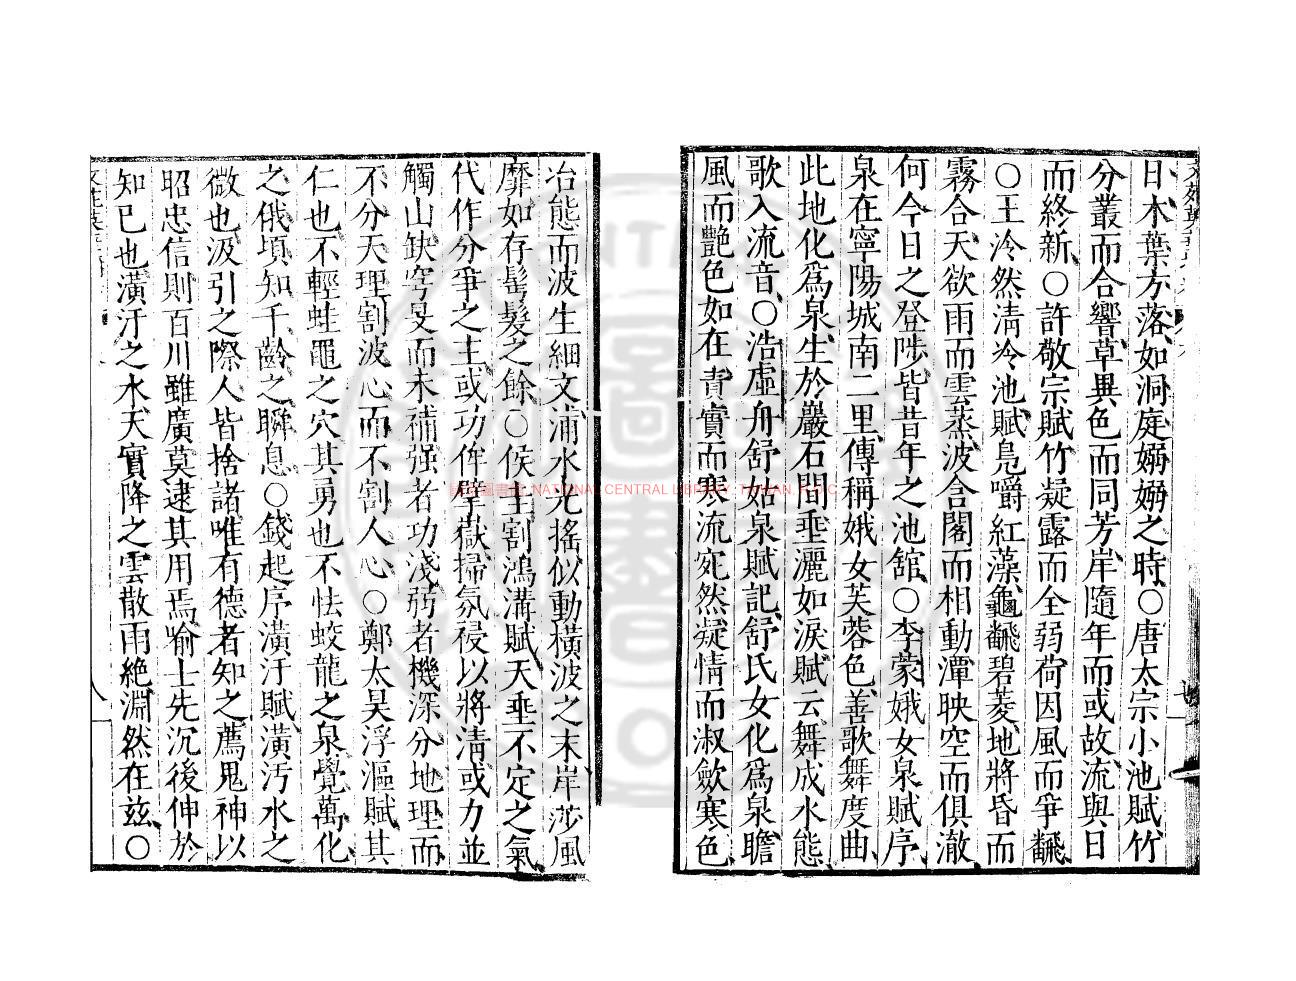 日木葉方落如洞庭嫋嫋之時○唐太宗小池賦竹
分叢而合響草異色而同芳岸隨年而或故流與日
而終新○許敬宗賦竹凝露而全弱荷因風而爭飜
○王泠然淸泠池賦鳧嚼紅藻龜飜碧菱地將昏而
霧合天欲雨而雲蒸波含閣而相動潭映空而俱澈
何今日之登陟皆昔年之池舘○李蒙娥女泉賦序
泉在寧陽城南二里傳稱娥女芙蓉色善歌舞度曲
此地化爲泉生於巖石間垂灑如淚賦云舞成水態
歌入流音○浩虛舟舒姑泉賦記舒氏女化爲泉瞻
風而艷色如在責實而寒流宛然凝情而淑歛寒色
冶態而波生細文浦水光搖似動橫波之末岸莎風
靡如存髩髮之餘○侯圭割鴻溝賦天垂不定之氣
代作分爭之主或功侔擘嶽掃氛祲以將淸或力並
觸山缺穹旻而未補强者功淺弱者機深分地理而
不分天理割波心而不割人心○鄭太昊浮漚賦其
仁也不輕蛙黽之穴其勇也不怯蛟龍之泉覺萬化
之俄頃知千齡之瞬息○錢起序潢汙賦潢汚水之
微也汲引之際人皆捨諸唯有德者知之薦鬼神以
昭忠信則百川雖廣莫逮其用焉喻士先沉後伸於
知已也潢汙之水天實降之雲散雨絶淵然在兹○
八
國家圖書館 NATIONAL CENTRAL LIBRARY, TAIWAN, R.O.C